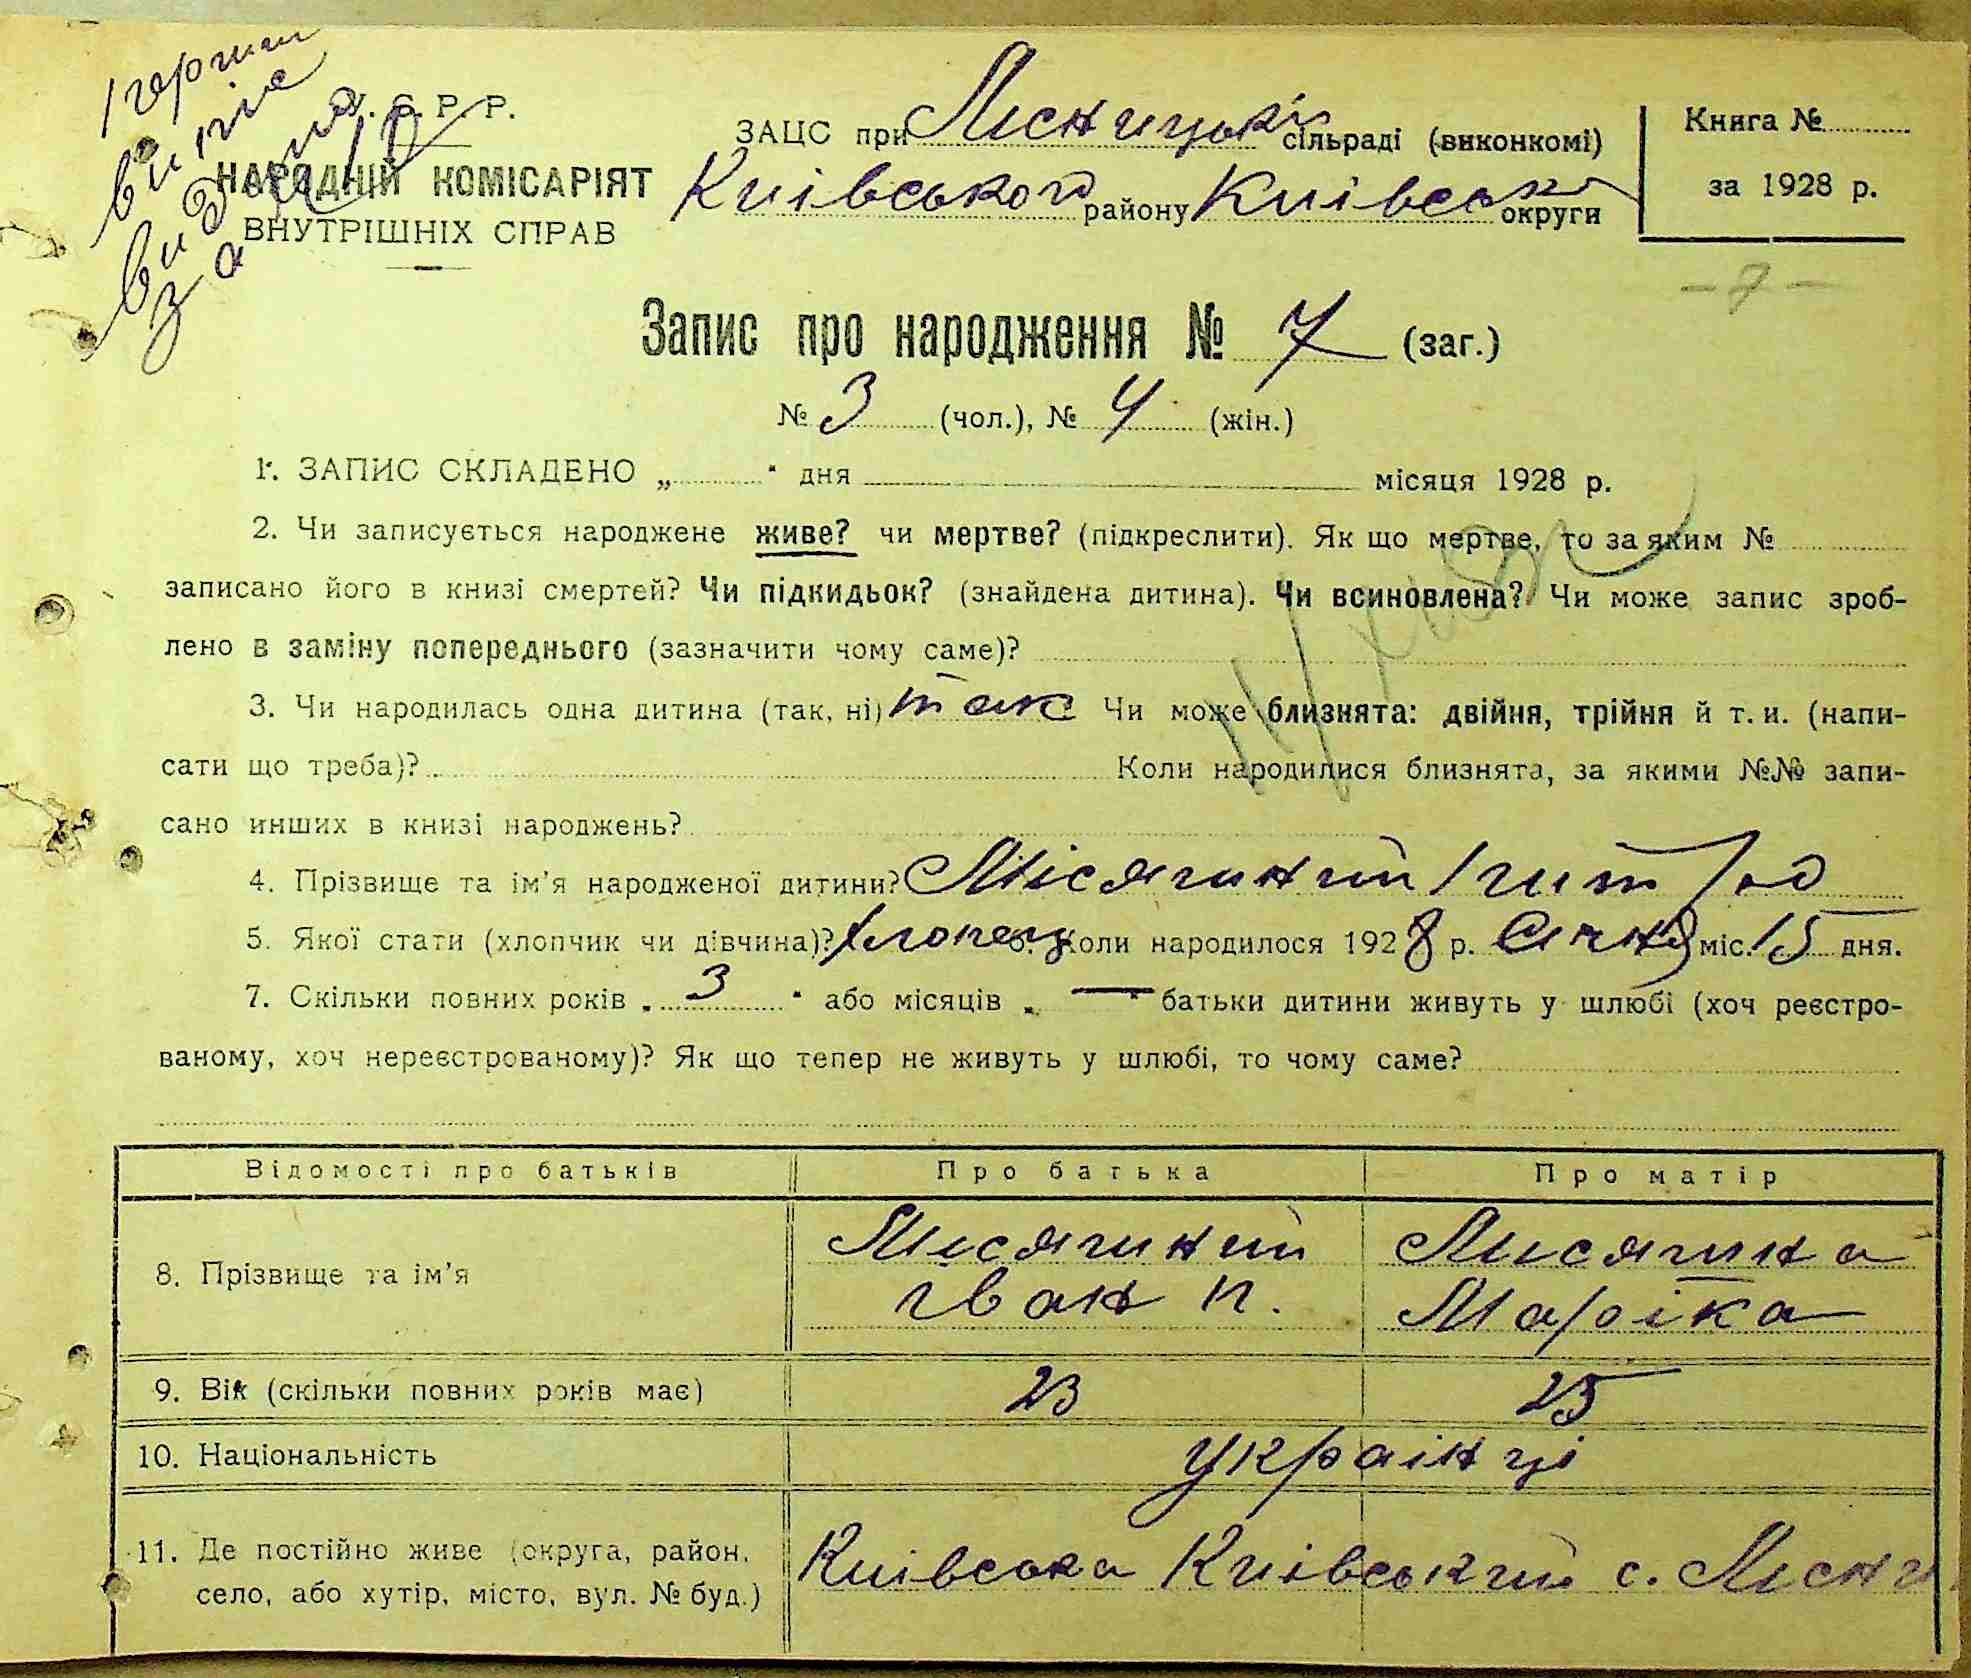 У. С. Р. Р.
НАРОДНІЙ КОМІСАРІЯТ
ВНУТРІШНІХ СПРАВ
ЗАЦС при Лісницькій сільраді (виконкомі)
Київського району Київської округи
Книга №
за 1928 р.
- 7 -
Запис про народження № 7 (заг.)
№ 3 (чол.), № 4 (жін.)
1. ЗАПИС СКЛАДЕНО „ “ дня місяця 1928 р.
2. Чи записується народжене живе? чи мертве? (підкреслити). Як що мертве, то за яким №
записано його в книзі смертей? Чи підкидьок? (знайдена дитина). Чи всиновлена? Чи може запис зроб-
лено в заміну попереднього (зазначити чому саме)?
3. Чи народилась одна дитина (так, ні) так Чи може близнята: двійня, трійня й т. и. (напи-
сати що треба)? Коли народилися близнята, за якими №№ запи-
сано инших в книзі народжень?
4. Прізвище та ім'я народженої дитини?
5. Якої стати (хлопчик чи дівчина)? хлопець 6. Коли народилося 1928 р. Січня міс. 15 дня.
7. Скільки повних років „ 3 “ або місяців „ — “ батьки дитини живуть у шлюбі (хоч реєстро-
ваному, хоч нереєстрованому)? Як що тепер не живуть у шлюбі, то чому саме?
Відомості про батьків Про батька Про матір
8. Прізвище та ім'я
Іван П. Марійка
9. Вік (скільки повних років має) 23 25
10. Національність українці
11. Де постійно живе (округа, район,
село, або хутір, місто, вул. № буд.)
Київська Київський с.